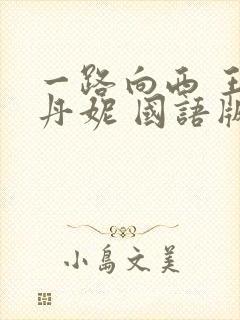 一路向西 王
丹妮 國語版
小島文美